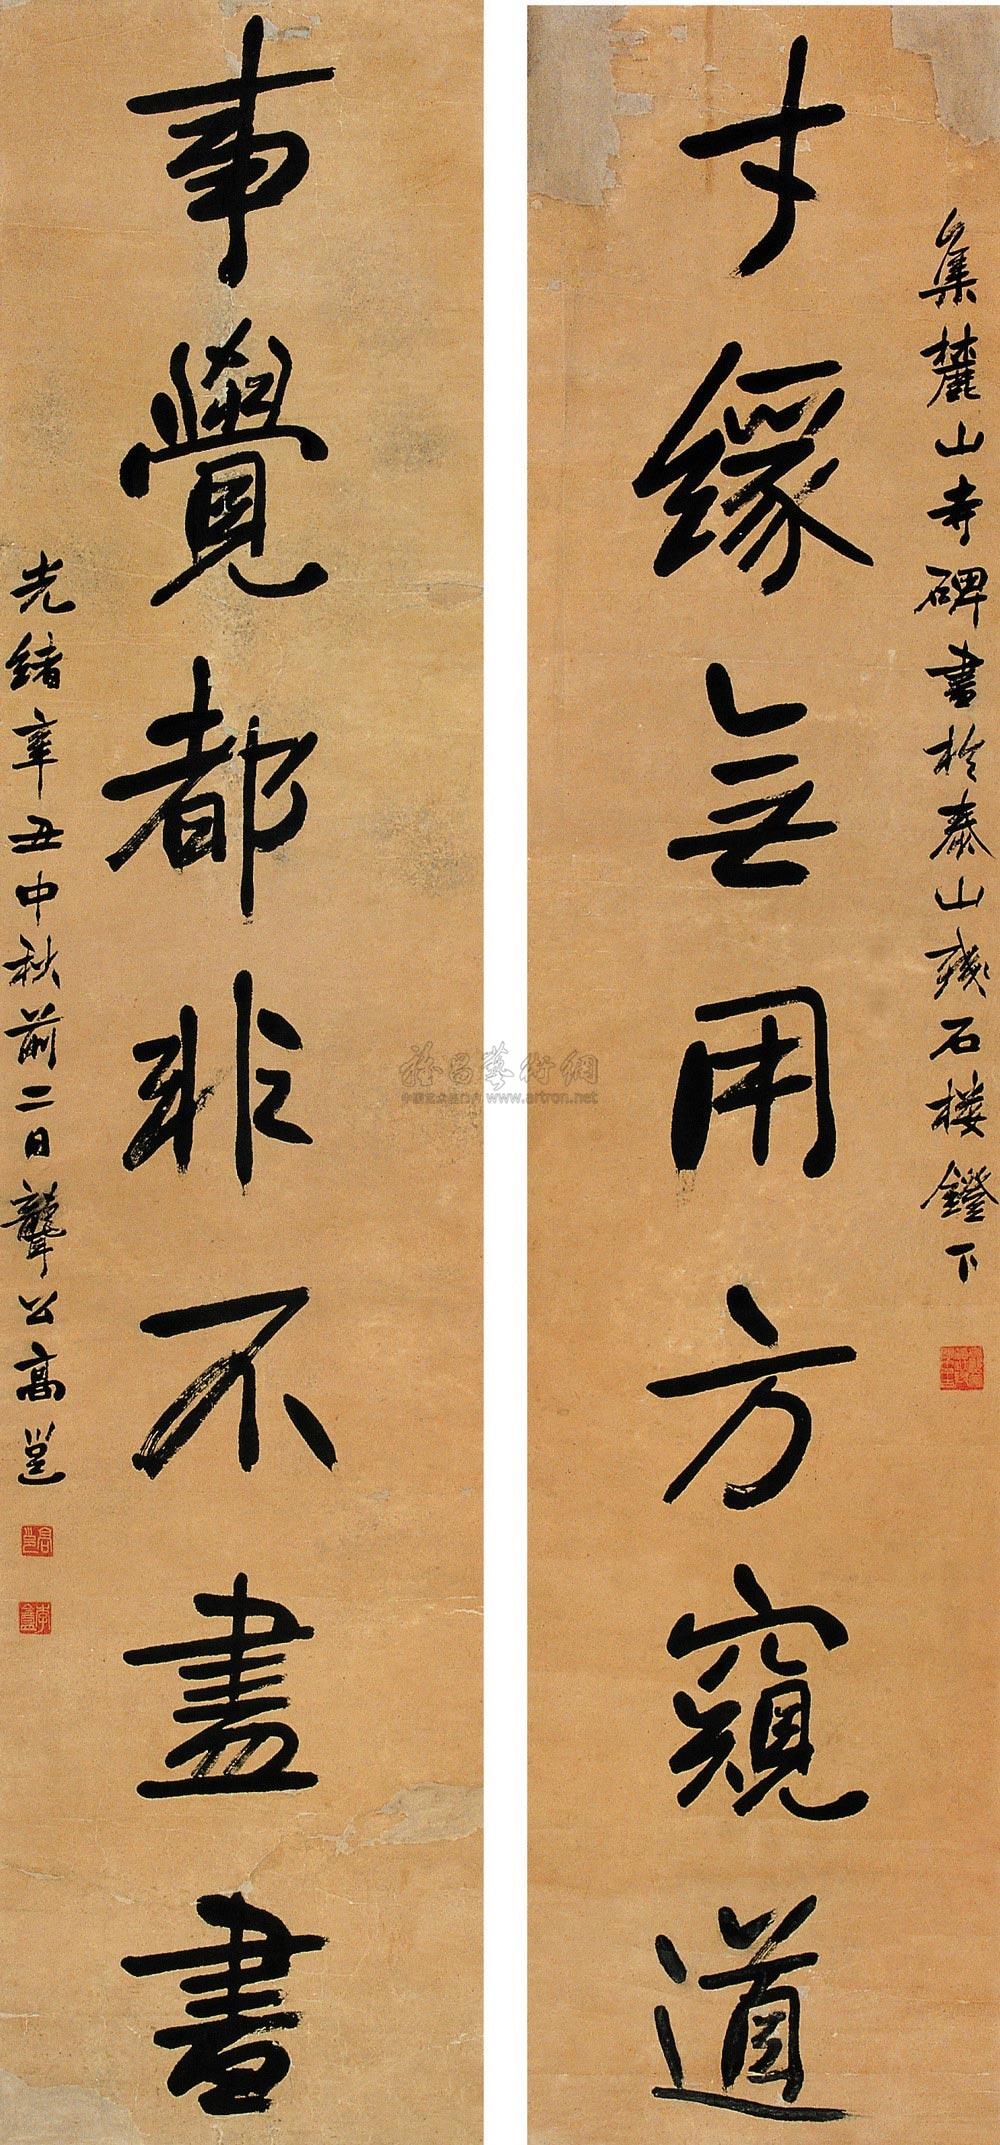 集麓山寺碑書於泰山殘石樓鐙下
才緣無用方窺道
事覺都非不盡書
光緒辛丑中秋前二日聾公高邕
www.artron.net